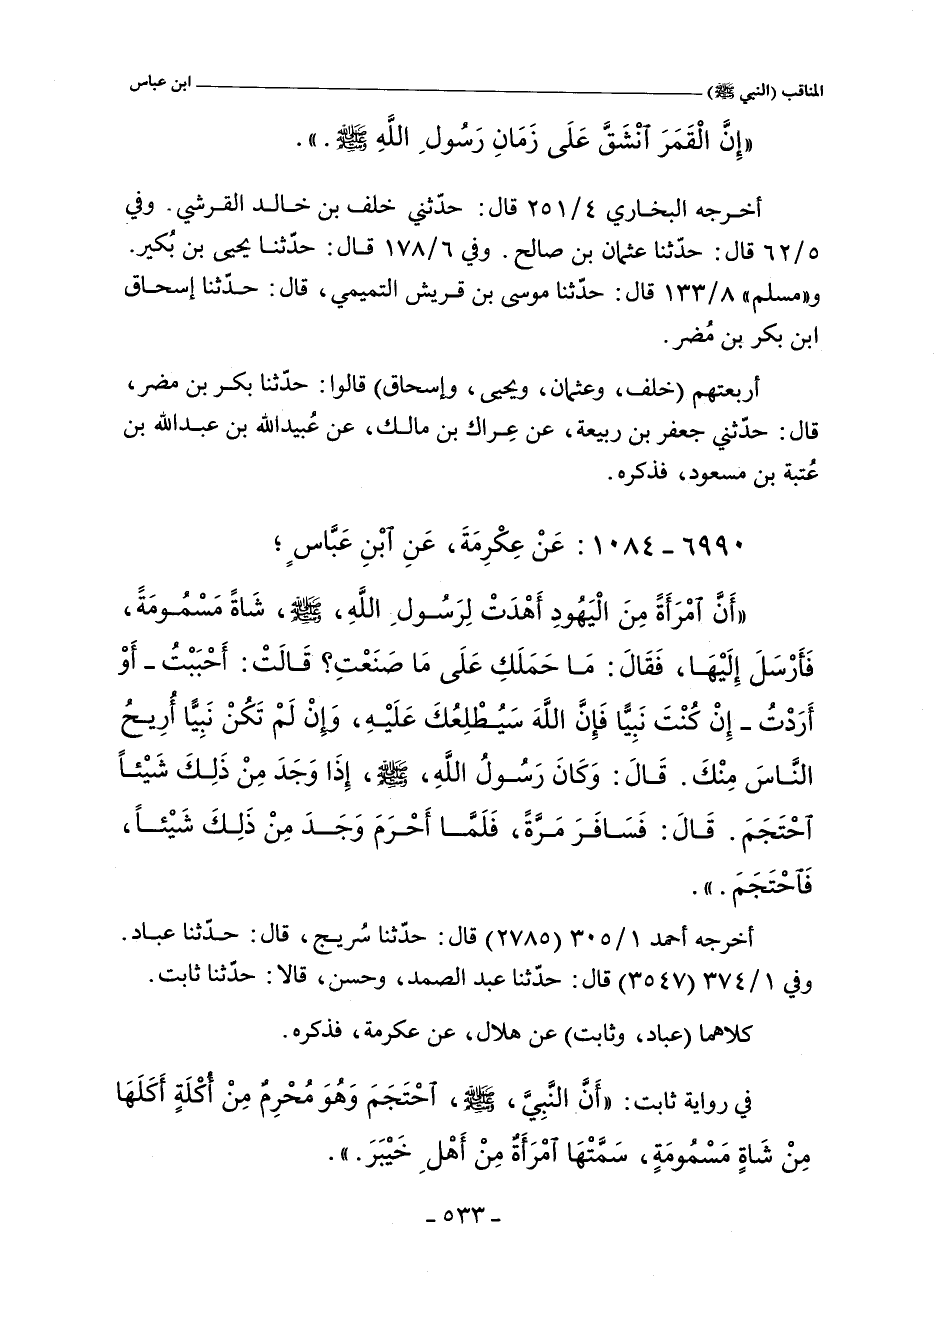 المناقب (النبي ﷺ) ــــــــــــ ابن عباس
«إِنَّ الْقَمَرَ ٱنْشَقَّ عَلَى زَمَانِ رَسُولِ اللَّهِ ﷺ.».
أخرجه البخاري ٢٥١/٤ قال: حدّثني خلف بن خالد القرشي. وفي
٦٢/٥ قال: حدّثنا عثمان بن صالح. وفي ١٧٨/٦ قال: حدّثنا يحيى بن بُكير.
و«مسلم» ١٣٣/٨ قال: حدّثنا موسى بن قريش التميمي، قال: حدّثنا إسحاق
ابن بكر بن مُضر.
أربعتهم (خلف، وعثمان، ويحيى، وإسحاق) قالوا: حدّثنا بكر بن مضر،
قال: حدّثني جعفر بن ربيعة، عن عِراك بن مالك، عن عُبيدالله بن عبدالله بن
عُتبة بن مسعود، فذكره.
٦٩٩٠ - ١٠٨٤: عَنْ عِكْرِمَةَ، عَنِ ٱبْنِ عَبَّاسٍ؛
«أَنَّ ٱمْرَأَةً مِنَ الْيَهُودِ أَهْدَتْ لِرَسُولِ اللَّهِ، ﷺ، شَاةً مَسْمُومَةً،
فَأَرْسَلَ إِلَيْهَا، فَقَالَ: مَا حَمَلَكِ عَلَى مَا صَنَعْتِ؟ قَالَتْ: أَحْبَبْتُ - أَوْ
أَرَدْتُ - إِنْ كُنْتَ نَبِيًّا فَإِنَّ اللَّهَ سَيُطْلِعُكَ عَلَيْهِ، وَإِنْ لَمْ تَكُنْ نَبِيًّا أُرِيحُ
النَّاسَ مِنْكَ. قَالَ: وَكَانَ رَسُولُ اللَّهِ، ﷺ، إِذَا وَجَدَ مِنْ ذَلِكَ شَيْئاً
ٱحْتَجَمَ. قَالَ: فَسَافَرَ مَرَّةً، فَلَمَّا أَحْرَمَ وَجَدَ مِنْ ذَلِكَ شَيْئاً،
فَٱحْتَجَمَ.».
أخرجه أحمد ٣٠٥/١ (٢٧٨٥) قال: حدّثنا سُريج، قال: حدّثنا عباد.
وفي ٣٧٤/١ (٣٥٤٧) قال: حدّثنا عبد الصمد، وحسن، قالا: حدّثنا ثابت.
كلاهما (عباد، وثابت) عن هلال، عن عكرمة، فذكره.
في رواية ثابت: «أَنَّ النَّبِيَّ، ﷺ، ٱحْتَجَمَ وَهُوَ مُحْرِمٌ مِنْ أُكْلَةٍ أَكَلَهَا
مِنْ شَاةٍ مَسْمُومَةٍ، سَمَّتْهَا ٱمْرَأَةٌ مِنْ أَهْلِ خَيْبَرَ.».
- ٥٣٣ -